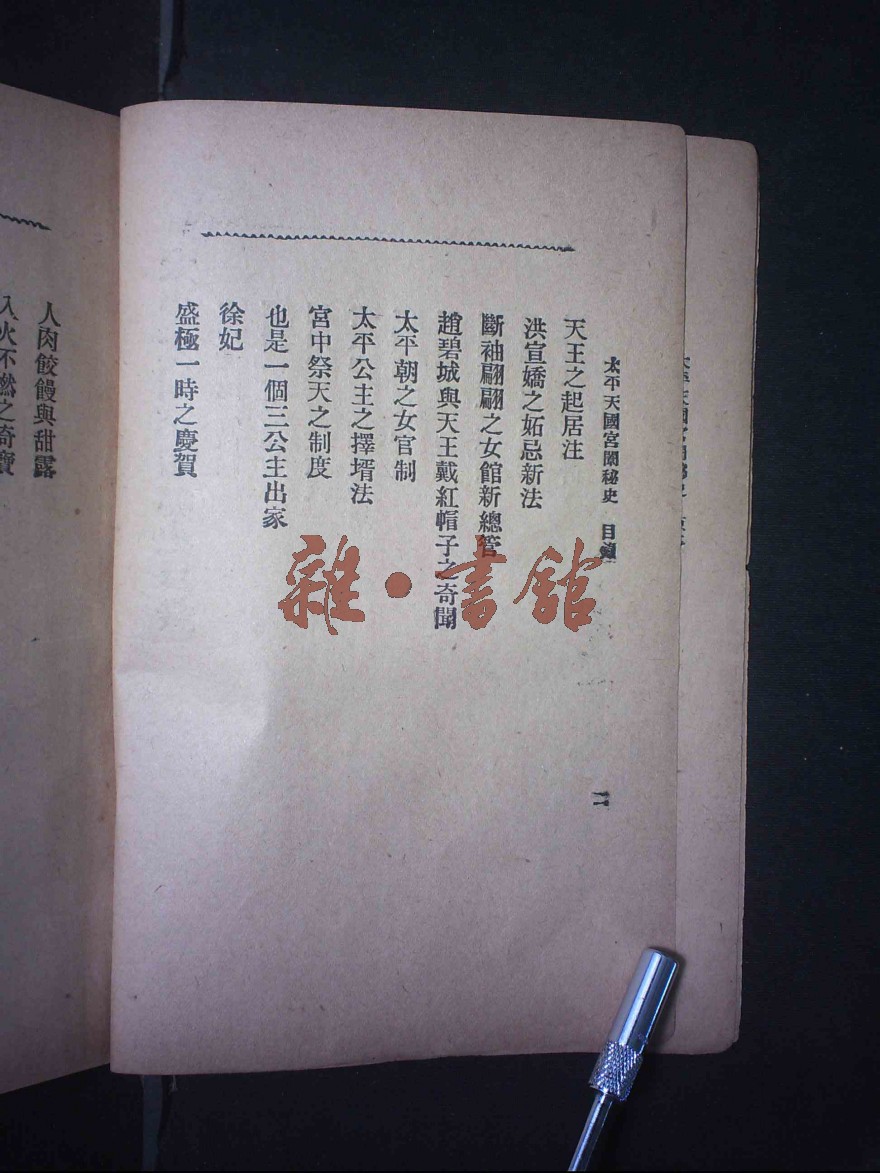 太平天國宮闈秘史　目錄
天王之起居注
洪宣嬌之妬忌新法
斷袖翩翩之女館新總管
趙碧城與天王戴紅帽子之奇聞
太平朝之女官制
太平公主之擇壻法
宮中祭天之制度
也是一個三公主出家
徐妃
盛極一時之慶賀
二
人肉餃饅與甜露
入火不燃之奇寶
雜·書館